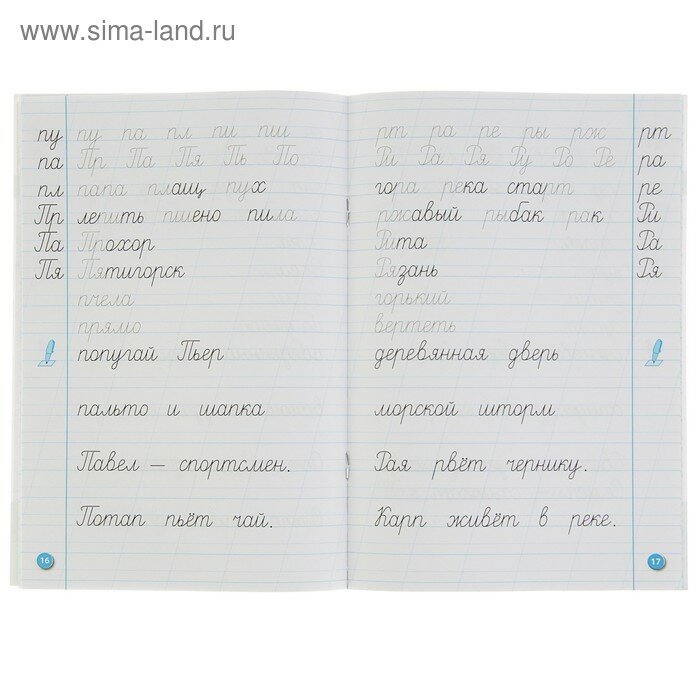 www.sima-land.ru
пу пу па пл пи пш
па Пр Па Пя Пь По
пл папа плащ пух
Пр лепить пшено пила
Па Прохор
Пя Пятигорск
пчела
прямо
попугай Пьер
пальто и шапка
Павел — спортсмен.
Потап пьёт чай.
16
рт ра ре ры рж рт
Ри Ра Ря Ру Ро Ре ра
гора река старт ре
ржавый рыбак рак Ри
Рита Ра
Рязань Ря
горький
вертеть
деревянная дверь
морской шторм
Рая рвёт чернику.
Карп живёт в реке.
17